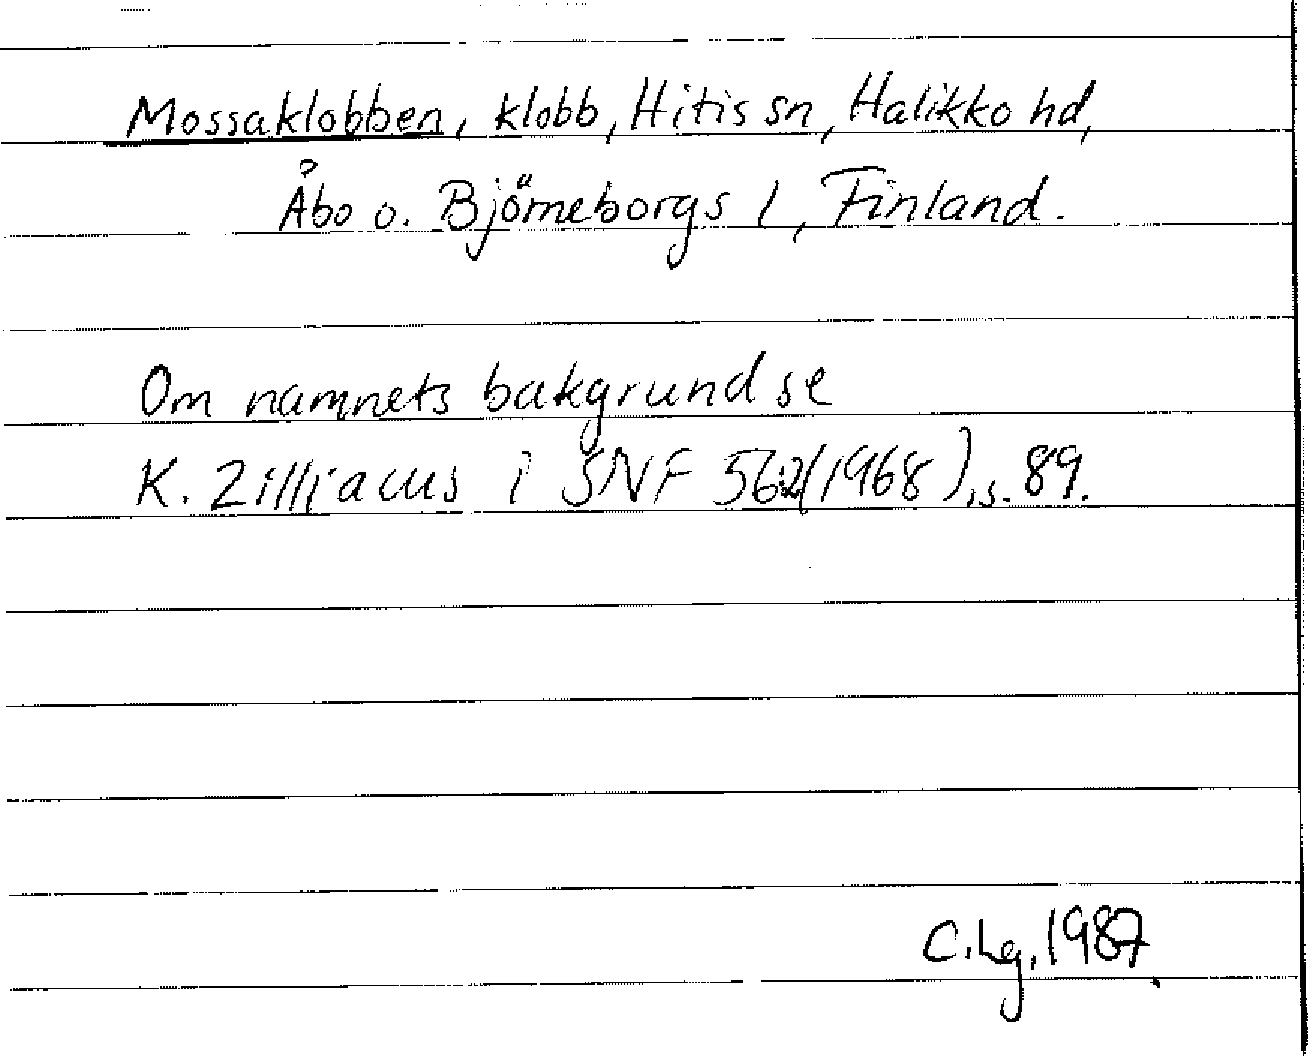 Mossaklobben, klobb, Hitis sn, Halikko hd,
Åbo o. Björneborgs l, Finland.
Om namnets bakgrund se
K. Zilliacus i SNF 56:2(1968), s. 89.
C.Lg. 1987.